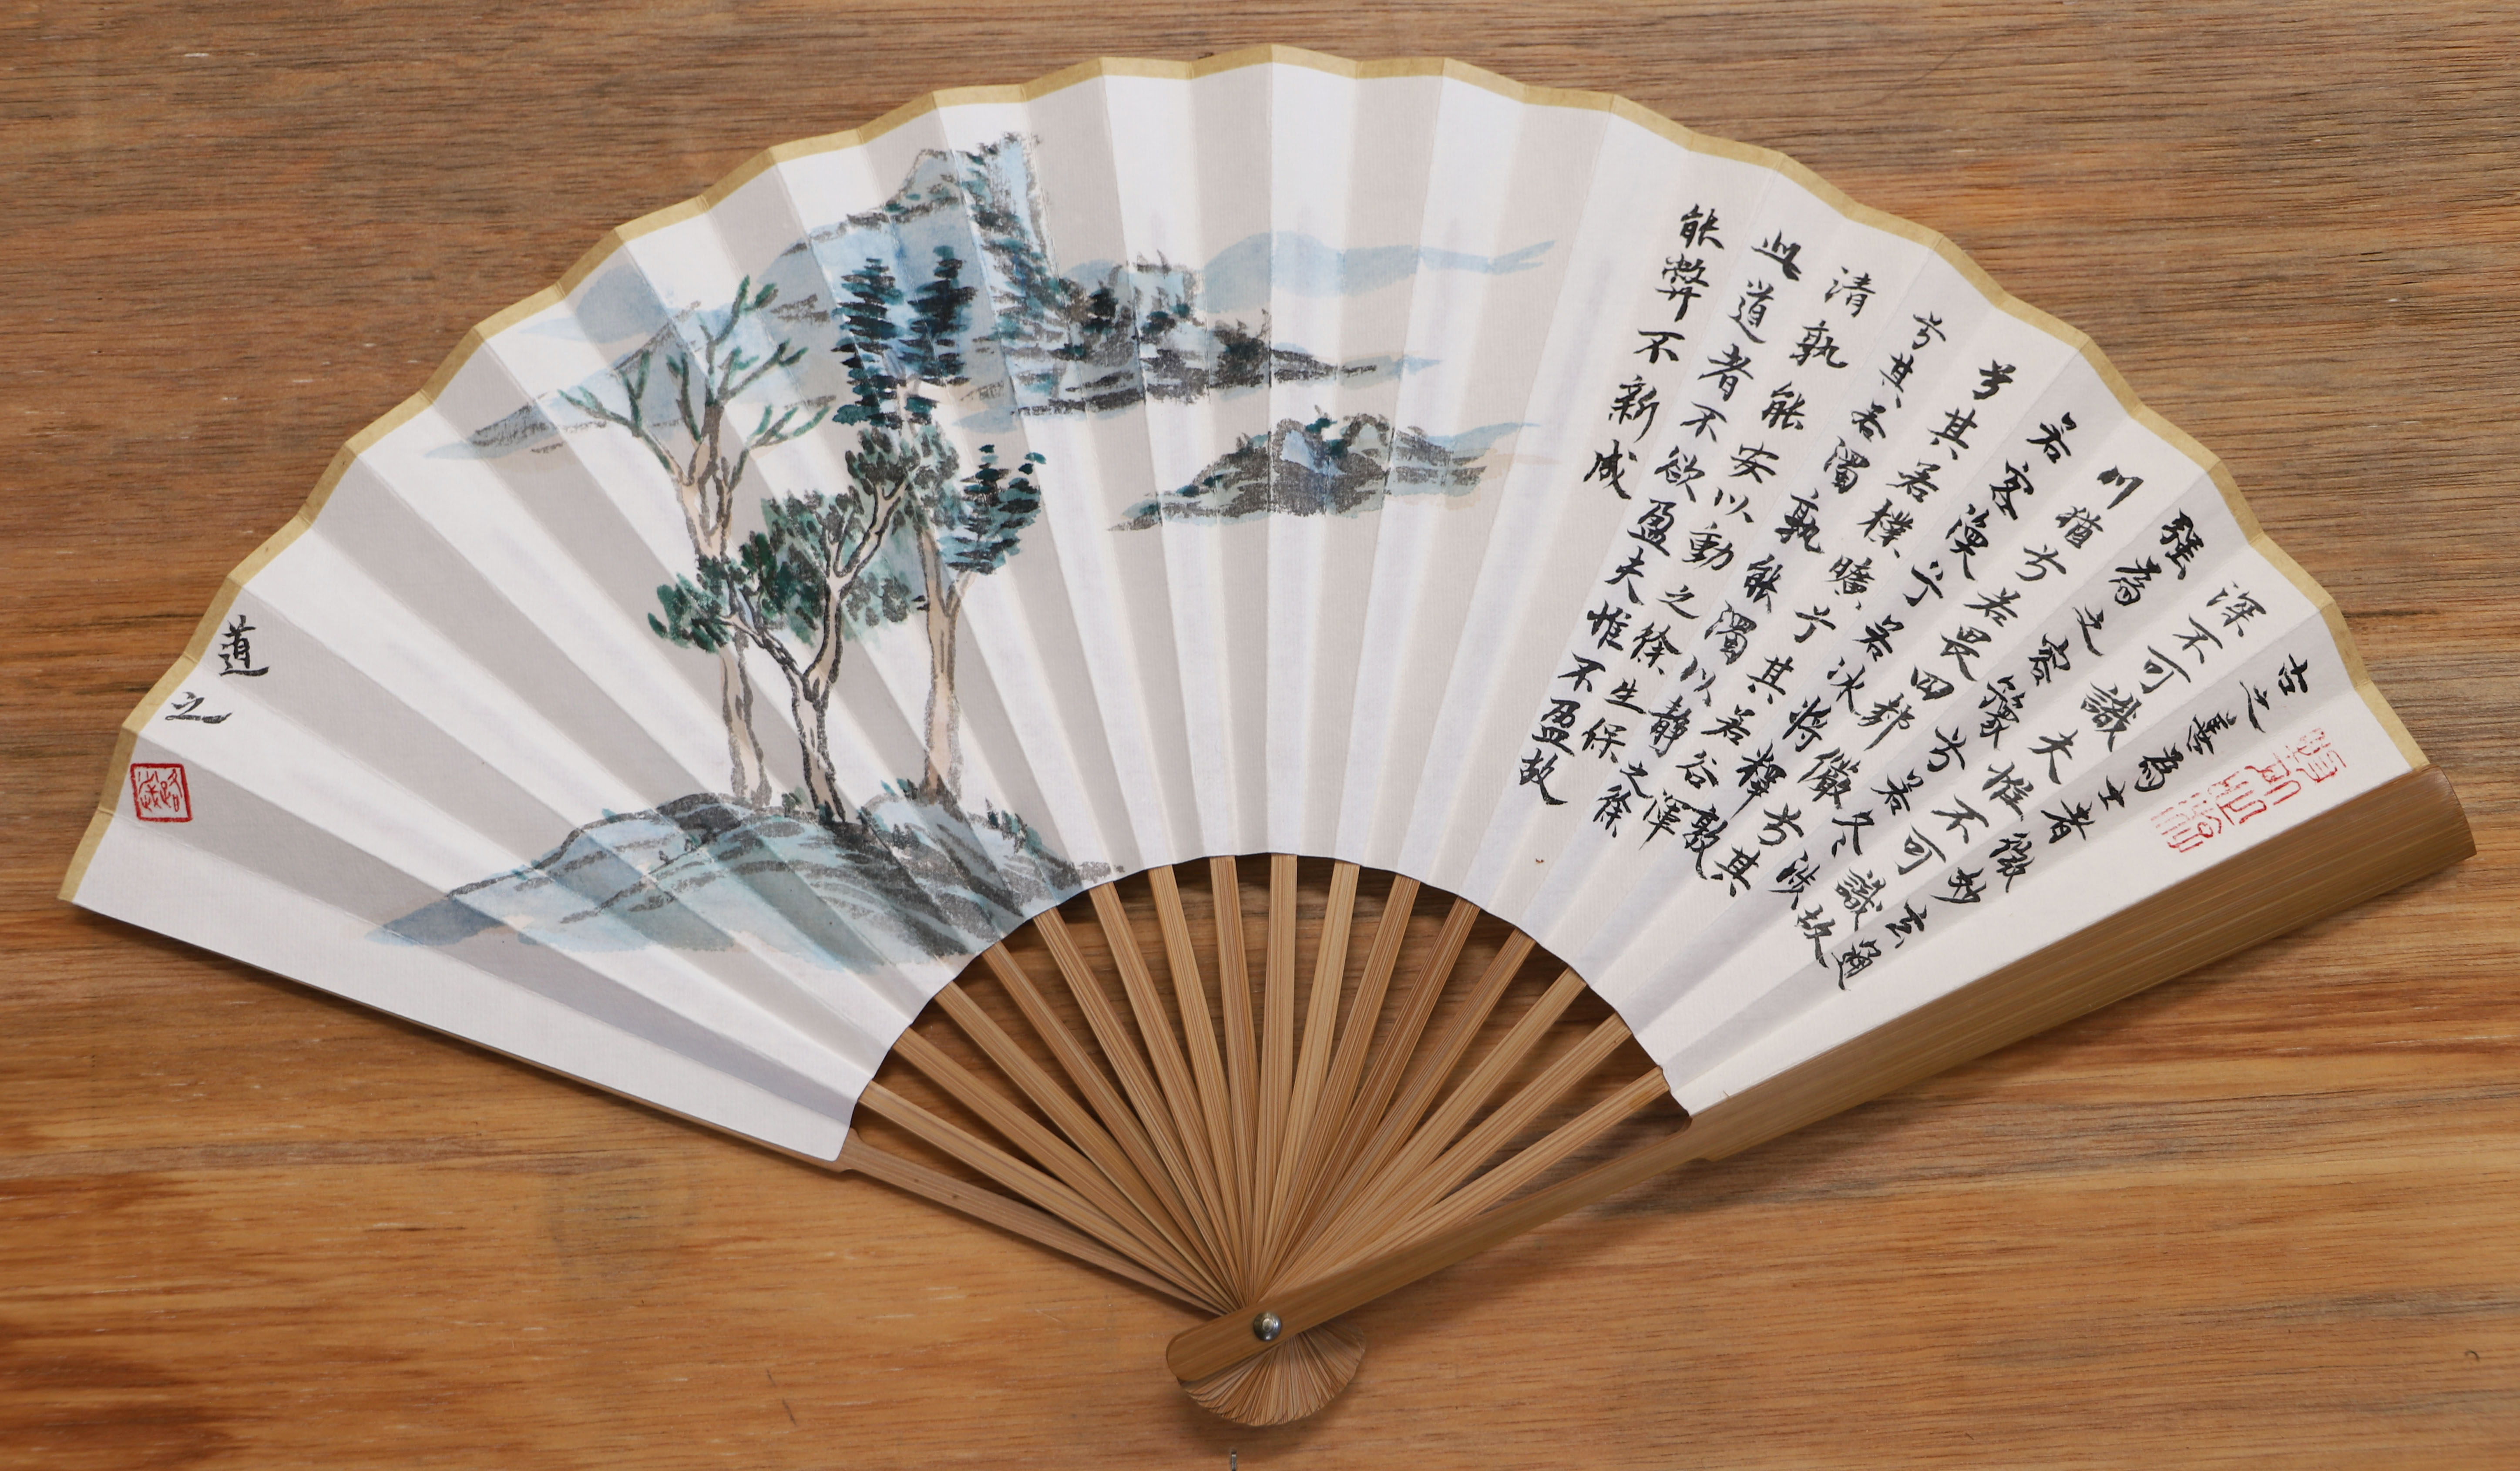 古之善為士者微妙玄通
深不可識夫惟不可識故
強為之容豫兮若冬涉
川猶兮若畏四鄰儼兮其
若客渙兮若冰將釋敦
兮其若樸曠兮其若谷渾
兮其若濁孰能濁以静之徐
清孰能安以動之徐生保
此道者不欲盈夫惟不盈故
能弊不新成
道之